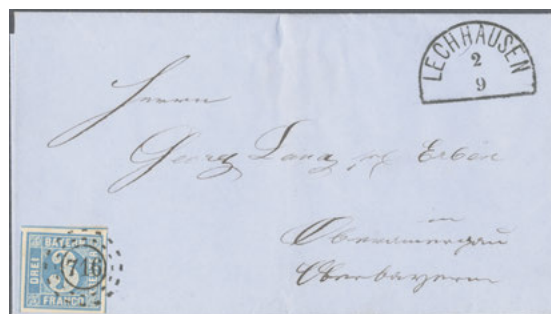 LECHHAUSEN
2
9
Herrn
Georg Lang sel Erben
in
Oberammergau
Oberbayern
BAYERN
DREI
3
716
FRANCO